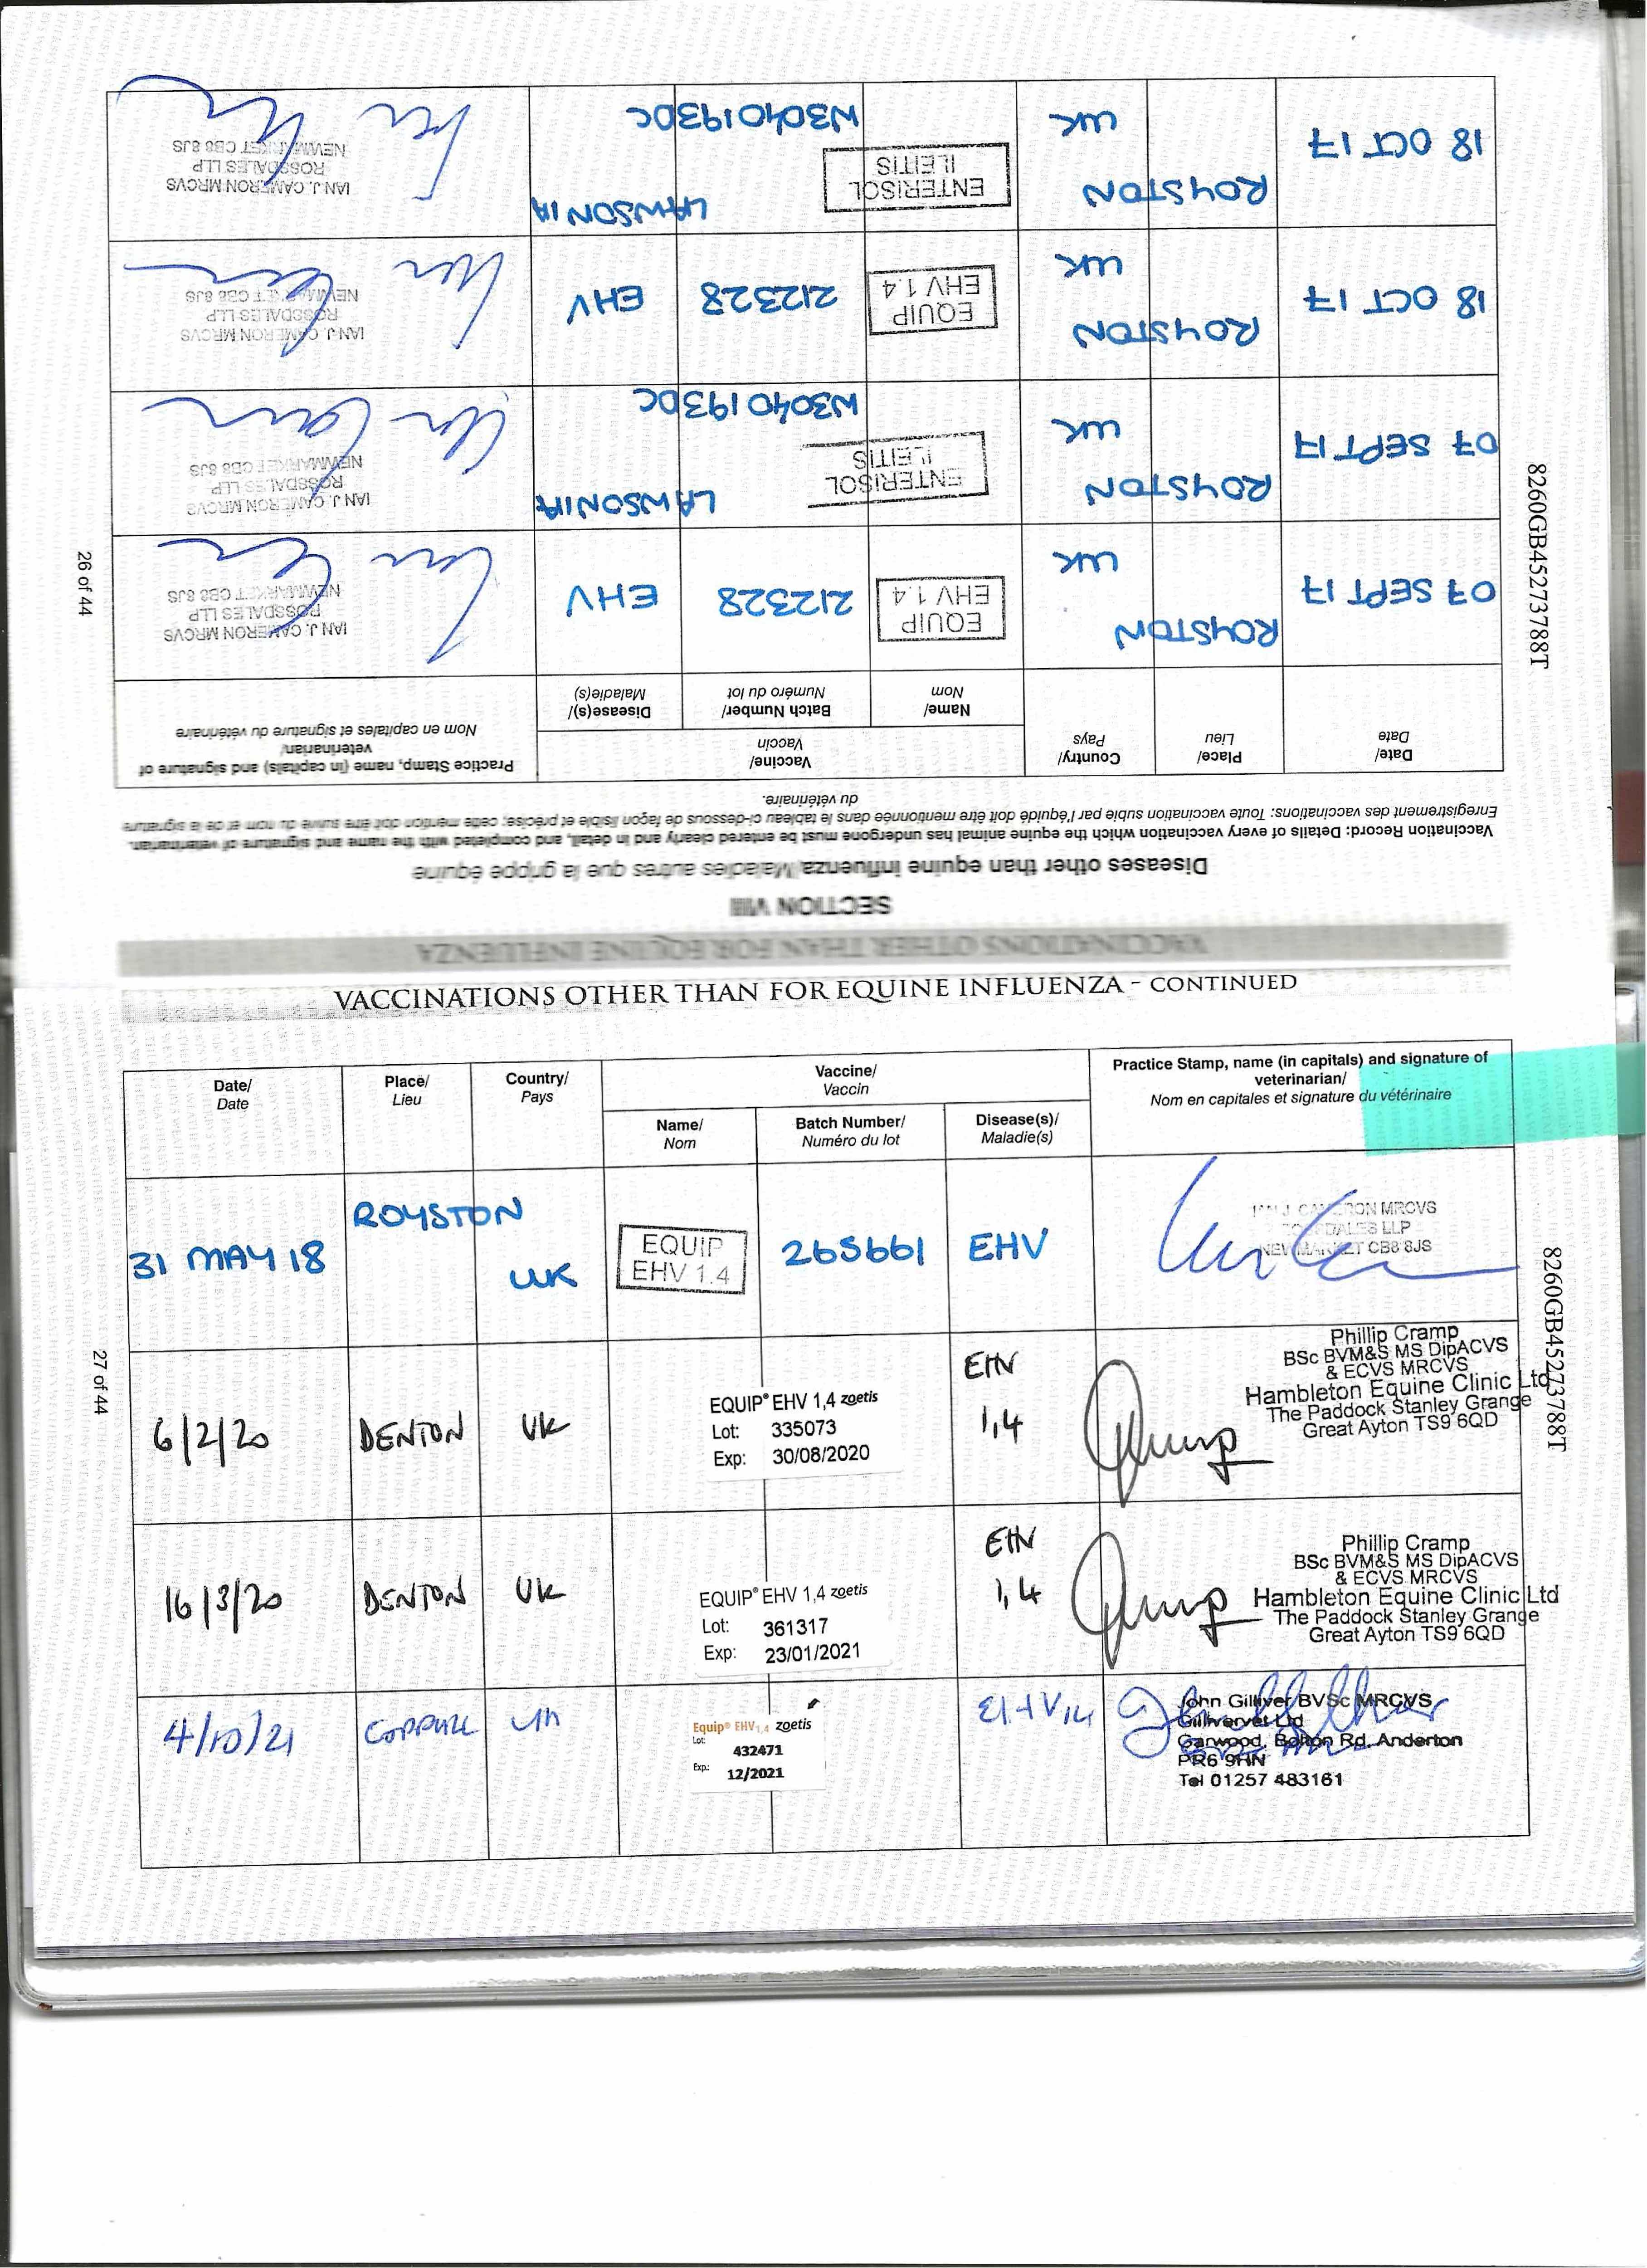 VACCINATIONS OTHER THAN FOR EQUINE INFLUENZA
SECTION VIII
Diseases other than equine influenza/Maladies autres que la grippe équine
Vaccination Record: Details of every vaccination which the equine animal has undergone must be entered clearly and in detail, and completed with the name and signature of veterinarian.
Enregistrement des vaccinations: Toute vaccination subie par l'équidé doit être mentionnée dans le tableau ci-dessous de façon lisible et précise; cette mention doit être suivie du nom et de la signature
du vétérinaire.
Date/
Date
Place/
Lieu
Country/
Pays
Vaccine/
Vaccin
Name/
Nom
Batch Number/
Numéro du lot
Disease(s)/
Maladie(s)
Practice Stamp, name (in capitals) and signature of
veterinarian/
Nom en capitales et signature du vétérinaire
07 SEPT 17
ROYSTON
UK
EQUIP
EHV 1.4
212328
EHV
IAN J. CAMERON MRCVS
ROSSDALES LLP
NEWMARKET CB8 8JS
07 SEPT 17
ROYSTON
UK
ENTERISOL
ILEITIS
LAWSONIA
N3040193DC
IAN J. CAMERON MRCVS
ROSSDALES LLP
NEWMARKET CB8 8JS
18 OCT 17
ROYSTON
UK
EQUIP
EHV 1.4
212328
EHV
IAN J. CAMERON MRCVS
ROSSDALES LLP
NEWMARKET CB8 8JS
18 OCT 17
ROYSTON
UK
ENTERISOL
ILEITIS
LAWSONIA
N3040193DC
IAN J. CAMERON MRCVS
ROSSDALES LLP
NEWMARKET CB8 8JS
8260GB45273788T
26 of 44
VACCINATIONS OTHER THAN FOR EQUINE INFLUENZA - CONTINUED
Date/
Date
Place/
Lieu
Country/
Pays
Vaccine/
Vaccin
Name/
Nom
Batch Number/
Numéro du lot
Disease(s)/
Maladie(s)
Practice Stamp, name (in capitals) and signature of
veterinarian/
Nom en capitales et signature du vétérinaire
31 MAY 18
ROYSTON
UK
EQUIP
EHV 1.4
265661
EHV
IAN J. CAMERON MRCVS
ROSSDALES LLP
NEWMARKET CB8 8JS
6/2/20
DENTON
UK
EQUIP® EHV 1,4 zoetis
Lot: 335073
Exp: 30/08/2020
EHV
1,4
Phillip Cramp
BSc BVM&S MS DipACVS
& ECVS MRCVS
Hambleton Equine Clinic Ltd
The Paddock Stanley Grange
Great Ayton TS9 6QD
16/3/20
DENTON
UK
EQUIP® EHV 1,4 zoetis
Lot: 361317
Exp: 23/01/2021
EHV
1,4
Phillip Cramp
BSc BVM&S MS DipACVS
& ECVS MRCVS
Hambleton Equine Clinic Ltd
The Paddock Stanley Grange
Great Ayton TS9 6QD
4/10/21
COPPULL
UK
Equip® EHV1,4 zoetis
Lot: 432471
Exp.: 12/2021
EHV 1,4
John Gilliver BVSc MRCVS
Gillivervet Ltd
Garwood, Bolton Rd, Anderton
PR6 9HN
Tel 01257 483161
8260GB45273788T
27 of 44